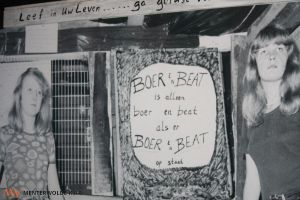 Leef in Uw Leven......ga
BOER'n BEAT
is alleen
boer en beat
als er
BOER'n BEAT
op staat
MENTERWOLDE